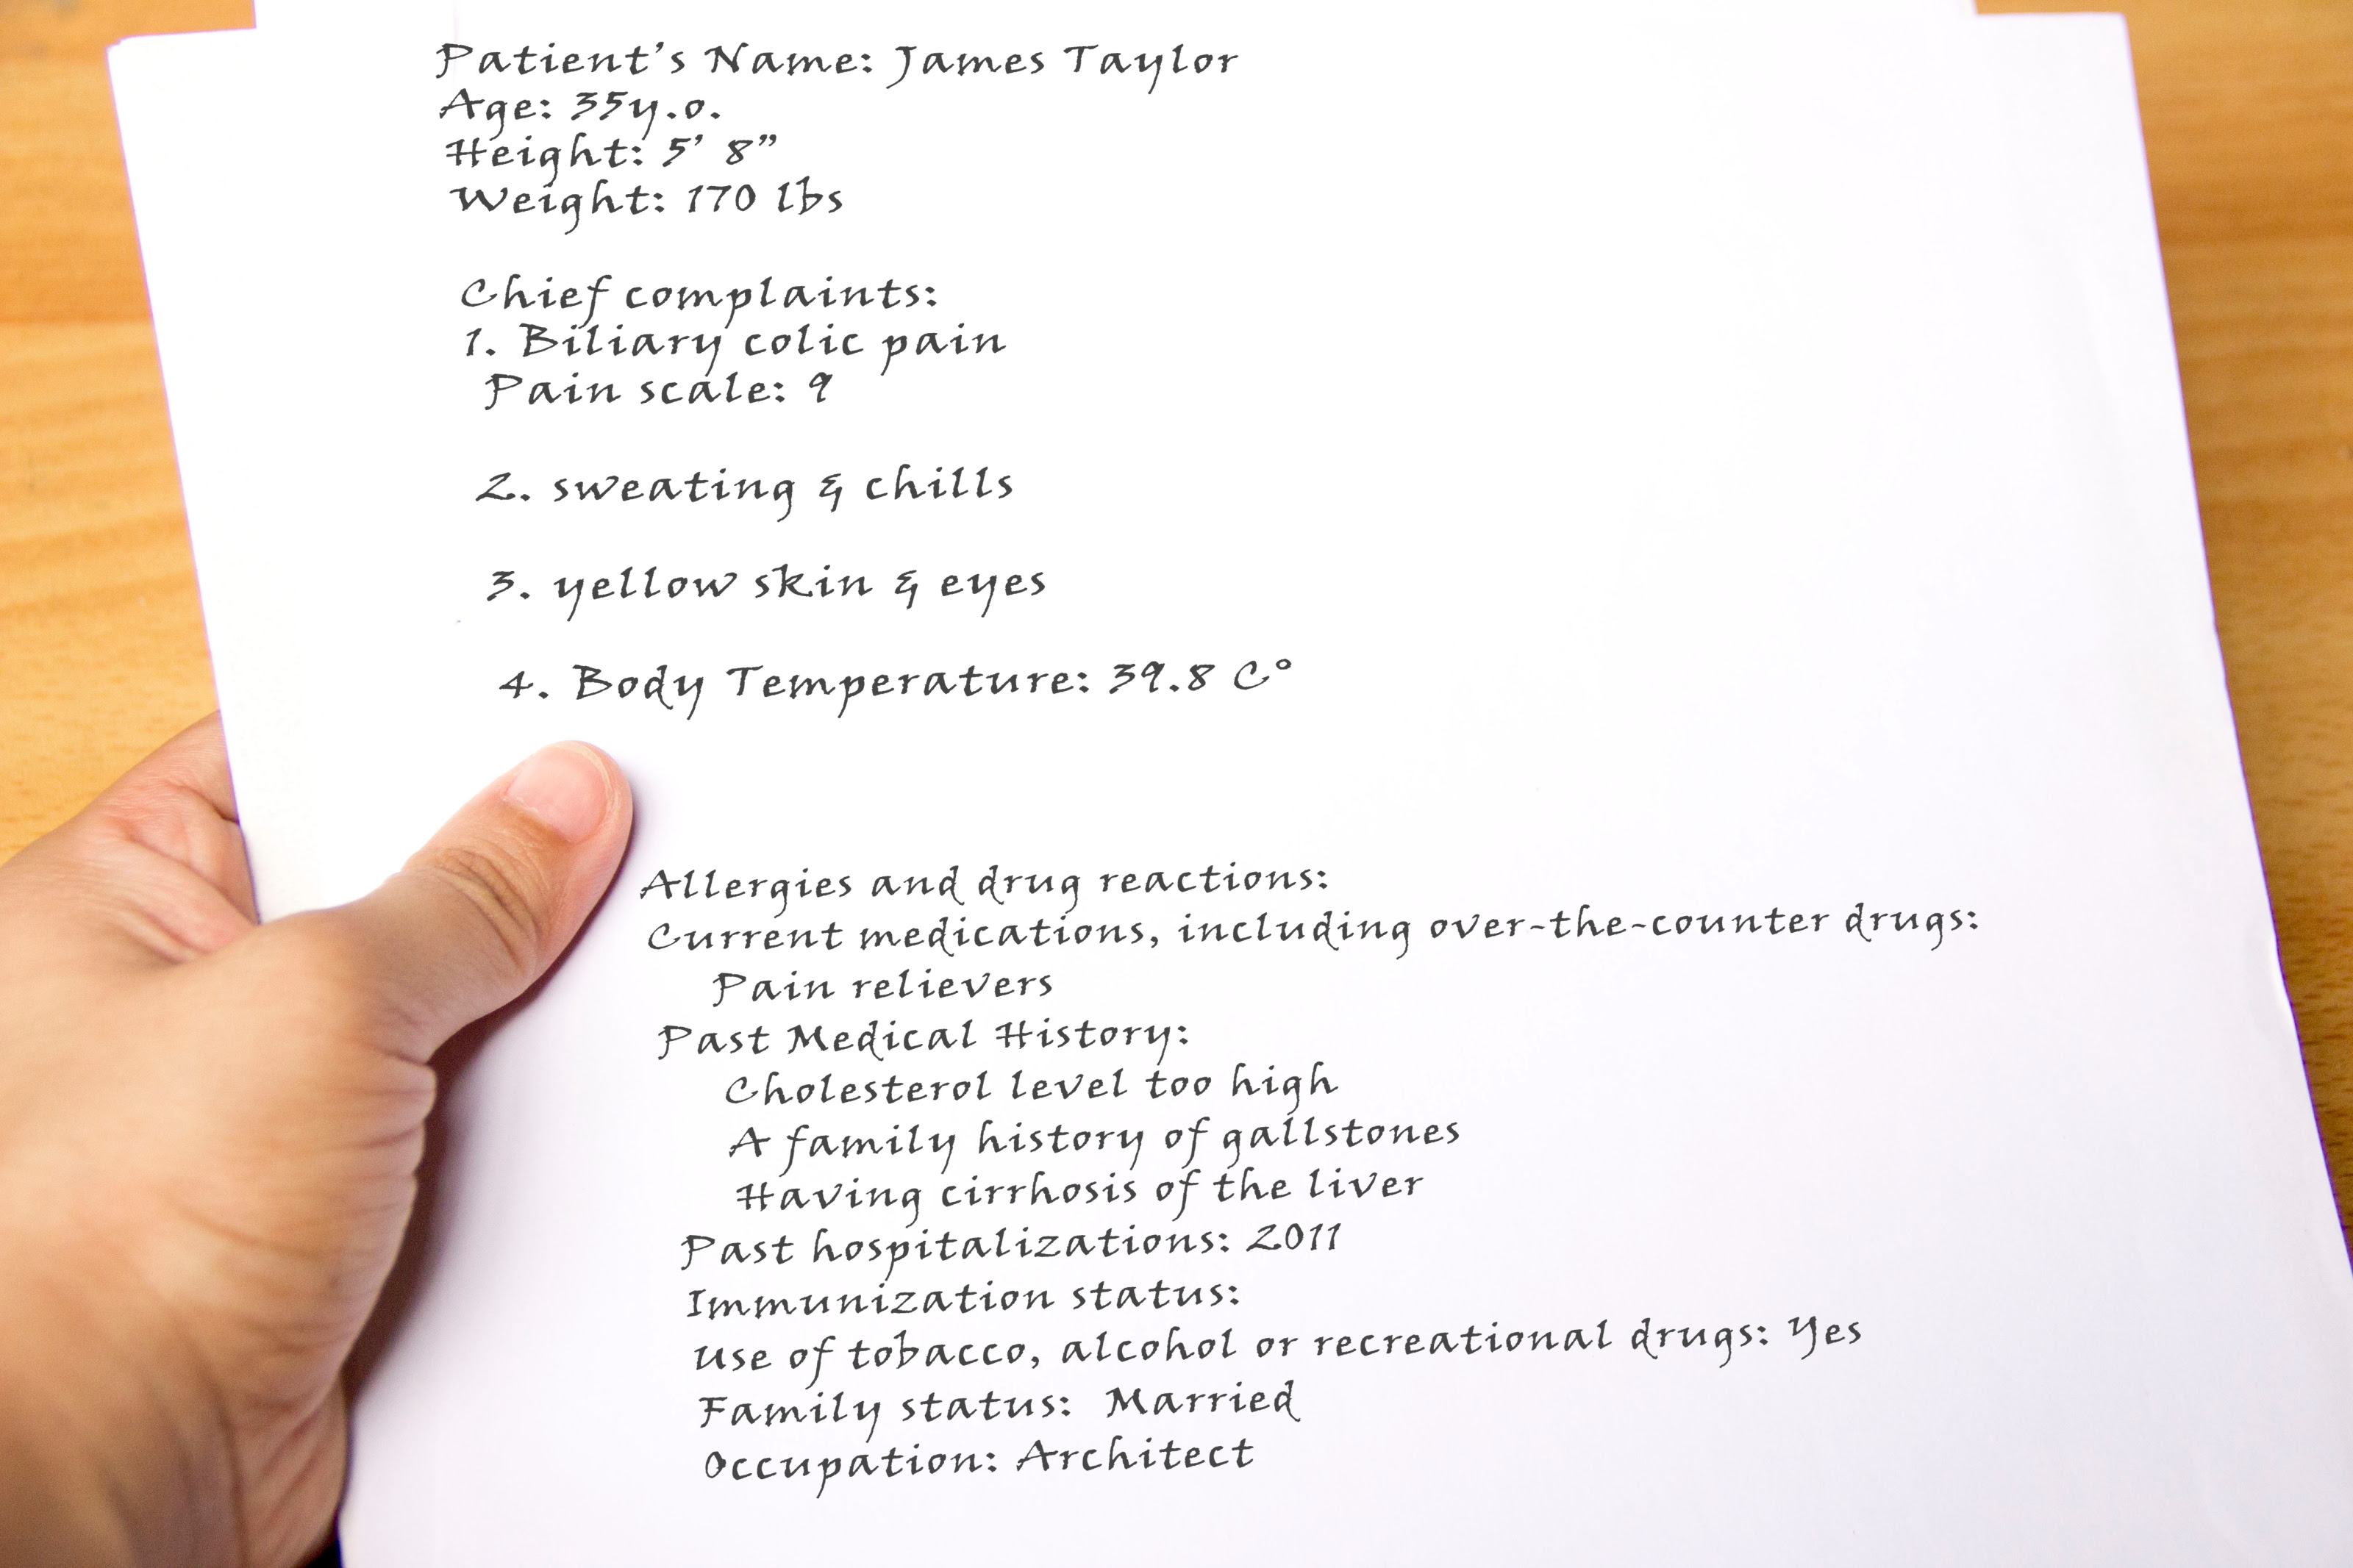 Patient's Name: James Taylor
Age: 35y.o.
Height: 5' 8”
Weight: 170 lbs
Chief complaints:
1. Biliary colic pain
Pain scale: 9
2. sweating & chills
3. yellow skin & eyes
4. Body Temperature: 39.8 C°
Allergies and drug reactions:
Current medications, including over-the-counter drugs:
Pain relievers
Past Medical History:
Cholesterol level too high
A family history of gallstones
Having cirrhosis of the liver
Past hospitalizations: 2011
Immunization status:
Use of tobacco, alcohol or recreational drugs: Yes
Family status: Married
Occupation: Architect